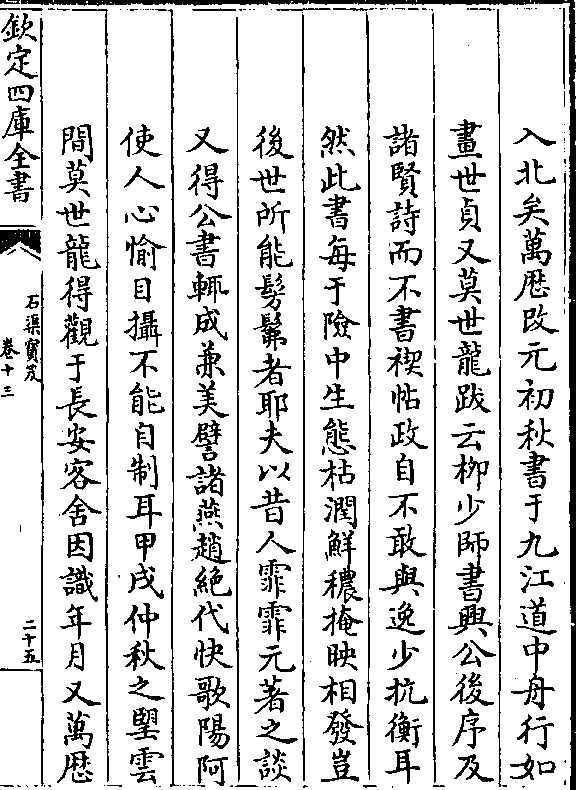 入北矣萬厯改元初秋書于九江道中舟行如
畫世貞又莫世龍跋云柳少師書興公後序及
諸賢詩而不書禊帖政自不敢與逸少抗衡耳
然此書每于險中生態枯潤鮮穠掩映相發豈
後世所能髣髴者耶夫以昔人霏霏元著之談
又得公書輒成兼美譬諸燕趙絶代快歌陽阿
使人心愉目攝不能自制耳甲戌仲秋之朢雲
間莫世龍得觀于長安客舍因識年月又萬厯
欽定四庫全書
石渠寶笈
卷十三
二十五